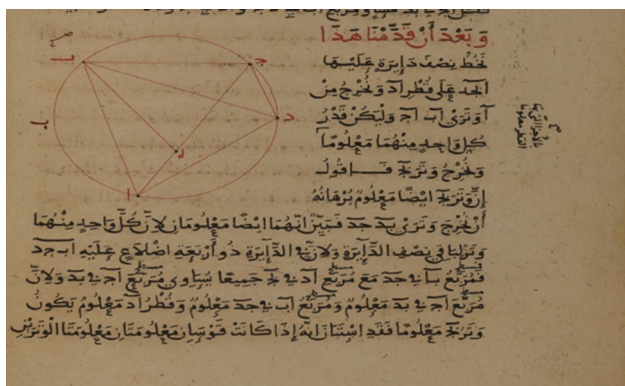 وَبَعْدَ أَنْ قَدَّمْنَا هَذَا
نَخُطُّ نِصْفَ دَايِرَةٍ عَلَيْهَا
ابجد عَلَى قُطْرِ اد وَنُخْرِجُ مِنْ
ا وَتَرَيْ اب اج وَلْيَكُنْ قَدْرُ
كل وَاحِدٍ مِنْهُمَا مَعْلُوماً
وَنُخْرِجُ وَتَرَ بج فَاقُولُ
إِنَّ وَتَرَ بج ايْضًا مَعْلُومٌ بُرْهَانُهُ
أَنْ نُخْرِجَ وَتَرَيْ بد جد فَبَيِّنٌ انَّهُمَا ايْضًا مَعْلُومَانِ لِانَّ كُلَّ وَاحِدٍ مِنْهُمَا
وَتَرٌ لِبَاقِي نصْفِ الدَّايِرَةِ وَلِانَّ فِي الدَّايِرَةِ ذُو أَرْبَعَةِ اضْلَاعٍ عَلَيْهِ ابجد
فَمُرَبَّعُ اب في جد مَعَ مُرَبَّعِ اد في بج جَمِيعًا يُسَاوِي مُرَبَّعَ اج في بد وَلِانَّ
مُرَبَّعَ اج في بد مَعْلُومٌ وَمُرَبَّعُ اب في جد مَعْلُومٌ وَقُطْرُ اد مَعْلُومٌ يَكُونُ
وَتَرُ بج مَعْلُومًا فَقَدِ اسْتَبَانَ أَنَّهُ إِذَا كَانَتْ قَوْسَانِ مَعْلُومَتَانِ مَعْلُومَتَا الْوَتَرَيْنِ
ب
ج
د
ا